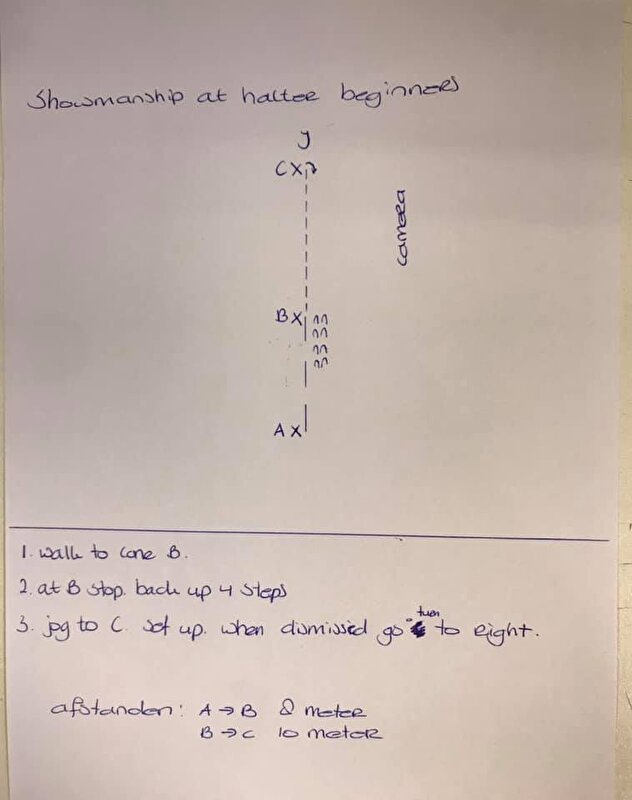 Showmanship at halter beginners
J
CX
camera
BX
AX
1. walk to cone B.
2. at B stop. back up 4 steps
3. jog to C. set up. when dismissed go turn to right.
afstanden: A → B 8 meter
B → C 10 meter